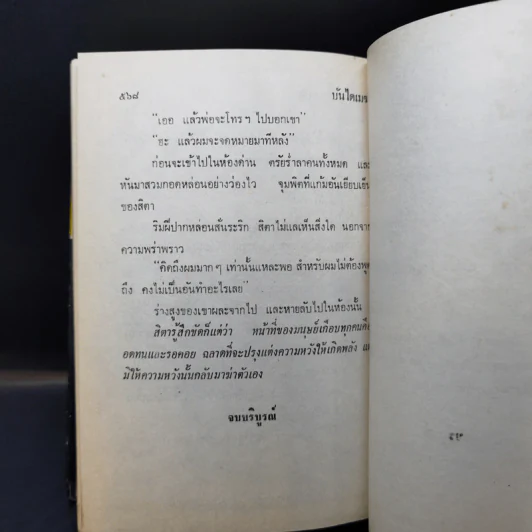 ๕๖๘ บันไดเมฆ
"เออ แล้วพ่อจะโทรฯ ไปบอกเขา"
"ฮะ แล้วผมจะจดหมายมาทีหลัง"
ก่อนจะเข้าไปในห้องด่าน ตรัยร่ำลาคนทั้งหมด และ
หันมาสวมกอดหล่อนอย่างว่องไว จุมพิตที่แก้มอันเยียบเย็น
ของสิตา
ริมฝีปากหล่อนสั่นระริก สิตาไม่แลเห็นสิ่งใด นอกจาก
ความพร่าพราว
"คิดถึงผมมากๆ เท่านั้นแหละพอ สำหรับผมไม่ต้องพูด
ถึง คงไม่เป็นอันทำอะไรเลย"
ร่างสูงของเขาผละจากไป และหายลับไปในห้องนั้น
สิตารู้สึกชัดก็แต่ว่า หน้าที่ของมนุษย์เกือบทุกคนคือ
อดทนและรอคอย ฉลาดที่จะปรุงแต่งความหวังให้เกิดพลัง
มิให้ความหวังนั้นกลับมาฆ่าตัวเอง
จบบริบูรณ์